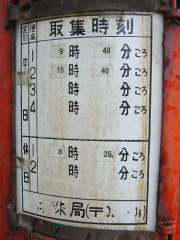 区別 便名 取集時刻
平日 1 9時40分ごろ
2 15時40分ごろ
3 時 分ごろ
4 時 分ごろ
休日 1 8時25分ごろ
2 時 分ごろ
集局(〒